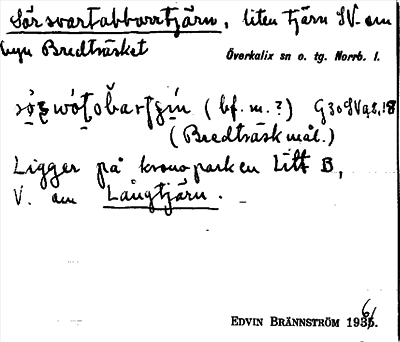 Sör svartabborrtjärn, liten tjärn SV. om
byn Bredträsket
Överkalix sn o. tg. Norrb. l.
(bf. m. ?)
(Bredträsk mål.)
Ligger på kronoparken Litt B,
V. om Långtjärn.
EDVIN BRÄNNSTRÖM 1936.